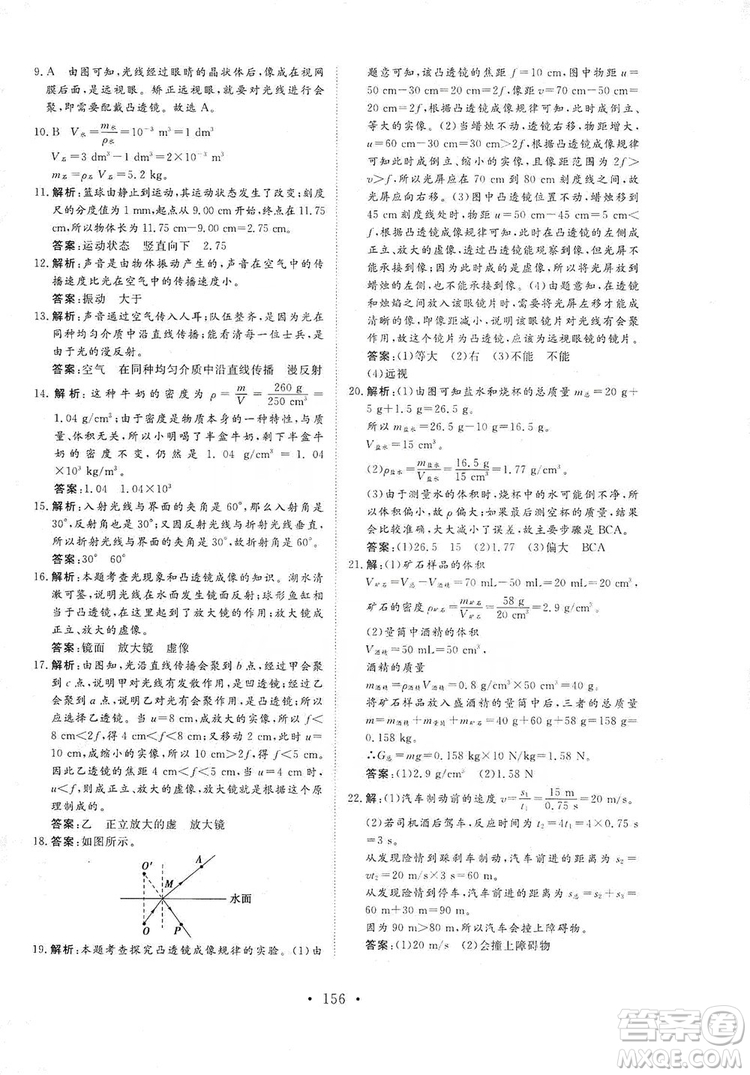 9. A　由图可知,光线经过眼睛的晶状体后,成像在视网
膜后面,是远视眼。矫正远视眼,需要对光线进行会
聚,需要配戴凸透镜。故选 A。
10. B　V水=m水/ρ水=10⁻³ m³=1 dm³
V石=3 dm³-1 dm³=2×10⁻³ m³
m石=ρ石 V石=5.2 kg。
11. 解析:篮球由静止到运动,其运动状态发生了改变;刻度
尺的分度值为 1 mm,起点从 9.00 cm 开始,终点在 11.75
cm,所以物体长 11.75 cm-9.00 cm=2.75 cm。
答案:运动状态　竖直向下　2.75
12. 解析:声音是由物体振动产生的,超音速在空气中的传
播速度比光在空气中的传播速度小。
答案:振动　大于
13. 解析:声音通过空气传入人耳;队伍要整齐,利用了光在
同种均匀介质中沿直线传播;能看到每一位士兵,是由
于光的漫反射。
答案:空气　在同种均匀介质中沿直线传播　漫反射
14. 解析:这种牛奶的密度为 ρ=m/V=260 g/250 cm³=
1.04 g/cm³=1.04×10³ kg/m³;由于密度是
物质的一种特性,取决于物质本身,而与质
量、体积无关,所以小明喝了半盒牛奶后,剩余半盒牛
奶的密度不变,仍然是 1.04 g/cm³=1.04
×10³ kg/m³。
答案:1.04　1.04×10³
15. 解析:入射光线与界面的夹角是 60°,那么入射角是
30°,反射角也是 30°;又因反射光线与折射光线垂直,
所以折射光线与界面的夹角是 30°,则折射角为 60°。
答案:30°　60°
16. 解析:本题考查光现象和凸透镜成像的知识。湖水清
澈可鉴,说明光线在水面发生镜面反射;球形鱼缸相
当于一个凸透镜,在这里起到了放大镜的作用,放大镜
成正立、放大的虚像。
答案:镜面　放大镜　虚像
17. 解析:由图知,光沿直线传播会聚在 b 点,经过甲会聚
到 c 点,则甲对光线有发散作用,是凹透镜;经过乙会
聚到 a 点,则乙对光线有会聚作用,是凸透镜,所以
应选择乙透镜。当 u=8 cm 时,成缩小的实像,所以 f<
8 cm<2f,即 4 cm<f<8 cm;又移动 2 cm 后,即 u=
10 cm,成缩小的实像,所以 10 cm>2f,即 f<5 cm,
因此,凸透镜的焦距 4 cm<f<5 cm,当 u=4 cm 时,成
正立、放大的虚像,能当放大镜使用。
答案:乙　正立放大的虚　放大镜
18. 答案:如图所示。
O′
A
M
水面
O
P
19. 解析:本题考查探究凸透镜成像规律的实验。(1)由
题意可知,该凸透镜的 f=10 cm,图中物距 u=
50 cm-30 cm=20 cm=2f,此时像距 v=70 cm-50 cm=
20 cm=2f,根据凸透镜成像规律可知,此时成倒立、
等大的实像。(2)当蜡烛不动,凸透镜右移,物距 u=
60 cm-30 cm=30 cm>2f,根据凸透镜成像规律可
知,此时成倒立、缩小的实像,像距 20 cm>v>f,即
2f>v>f,所以光屏应放到 80 cm 的刻度线内侧,故
光屏应向右移。(3)图中凸透镜位置不变,蜡烛移到
45 cm 刻度线处,此时物距 u=50 cm-45 cm=5 cm<
f,根据凸透镜成像规律可知,此时凸透镜成正立、放
大的虚像,通过凸透镜能观察到像,但光屏不能承接,
所以光屏从蜡烛后方的任何位置,都不能承接到蜡烛
的虚像。(4)由题意知,光屏上原来有清晰的像,在凸
透镜和烛焰之间放入该眼镜片,光屏上的像变模糊,
向左移动光屏,又能成清晰的像,说明该眼镜对光有
会聚作用,是凸透镜,所以是远视眼镜。
答案:(1)等大　(2)右　(3)不能　不能
(4)远视
20. 解析:(1)由图可知盐水和烧杯的总质量 m=20 g+
5 g+1.5 g=26.5 g。
所以 m盐水=m总-m杯=26.5 g-10 g=16.5 g。
V盐水=15 cm³。
(2)ρ盐水=m盐水/V盐水=16.5 g/15 cm³=1.77 cm³。
(3)由于测量水的体积时,烧杯中的水不能倒尽,体积
偏小,故 ρ 偏大;由于最后测空烧杯的质量,结果
会比原来大大减小了误差,故主要步骤是 BCA。
答案:(1)26.5　15　(2)1.77　(3)偏大　BCA
21. 解:(1)矿石样品的体积
V矿石=V总-V酒精=70 mL-50 mL=20 mL=20 cm³
矿石的密度 ρ矿石=m矿石/V矿石=58 g/20 cm³=2.9 g/cm³。
(2)量筒中酒精的体积
V酒精=50 mL=50 cm³
酒精的质量
m酒精=ρ酒精V酒精=0.8 g/cm³×50 cm³=40 g
将矿石样品放入盛酒精的量筒中,三者的总质量
m=m酒精+m量筒+m矿石=40 g+60 g+58 g=158 g=
0.158 kg。
∴G总=mg=0.158 kg×10 N/kg=1.58 N。
答案:(1)2.9 g/cm³　(2)1.58 N
22. 解:(1)汽车制动前的速度 v=s₁/t₁=15 m/0.75 s=20 m/s。
(2)若司机酒后驾车,反应时间 t₂=4t₁=4×0.75 s
=3 s。
从发现险情到踩刹车制动,汽车前进的距离 s₂=
vt₂=20 m/s×3 s=60 m。
从发现险情到停车,汽车前进的总距离 s=s₂+s₃=
60 m+30 m=90 m。
因为 90 m>80 m,所以汽车会撞上障碍物。
答案:(1)20 m/s　(2)会撞上障碍物
• 156 •
答案圈
MXQE.COM